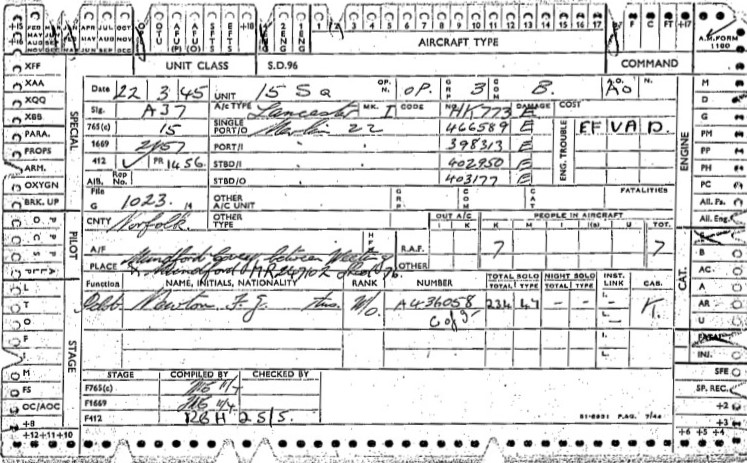 FEB APR JUL OCT
MAR MAY AUG NOV
MAY AUG NOV JUN SEP DEC
OTU
AFU (P)
AFU (O)
SFTS
EFTS
+18
2 ENG
1 2 3 4 5 6 7 8 9 10 11 12 13 14 15 16 17
F C FT +17
AIRCRAFT TYPE
A.M. FORM 1180
UNIT CLASS S.D.96 COMMAND
XFF
XAA
XQQ
XBB
PARA.
PROPS
ARM.
OXYGEN
BRK. UP
SPECIAL
PILOT
STAGE
L
T
O
F
J
M
FS
OC/AOC
+8
+12+11+10
Date 22 3 45 UNIT 15 Sq OP. N. OP. GRP 3 COM B. AO. N. AO
Sig. A37 A/C TYPE Lancaster MK. I CODE NO HK773 DAMAGE E COST
765(c) 15 SINGLE PORT/O Merlin 22 466589 E ENG. TROUBLE EF VA D.
1669 2157 PORT/I 398313 E
412 PR 1456. STBD/I 402950 E
AIB. Rep No. STBD/O 403177 E
File G 1023. OTHER A/C UNIT GRP COM CAT FATALITIES
CNTY Norfolk. OTHER TYPE OUT A/C I K PEOPLE IN AIRCRAFT K M I I(s) U TOT.
A/F R.A.F. 7 7
PLACE Mundford between Meeting OTHER
Mundford MR
Function NAME, INITIALS, NATIONALITY RANK NUMBER TOTAL SOLO TOTAL TYPE NIGHT SOLO TOTAL TYPE INST. LINK CAS.
Newton F. J. Aus. W/O. A436058 234 47 – – K.
C of 5
STAGE COMPILED BY CHECKED BY
F765(c)
F1669
F412 RBH 25/5.
51-8821 P.AG. 7/44
M
D
G
PM
PP
PH
PC
All. Fa.
All. Eng.
ENGINE
B
AC
A
AR
U
CAT.
FATAL
INJ.
SFE
SP. REC.
+2
+3
+6 +5 +4